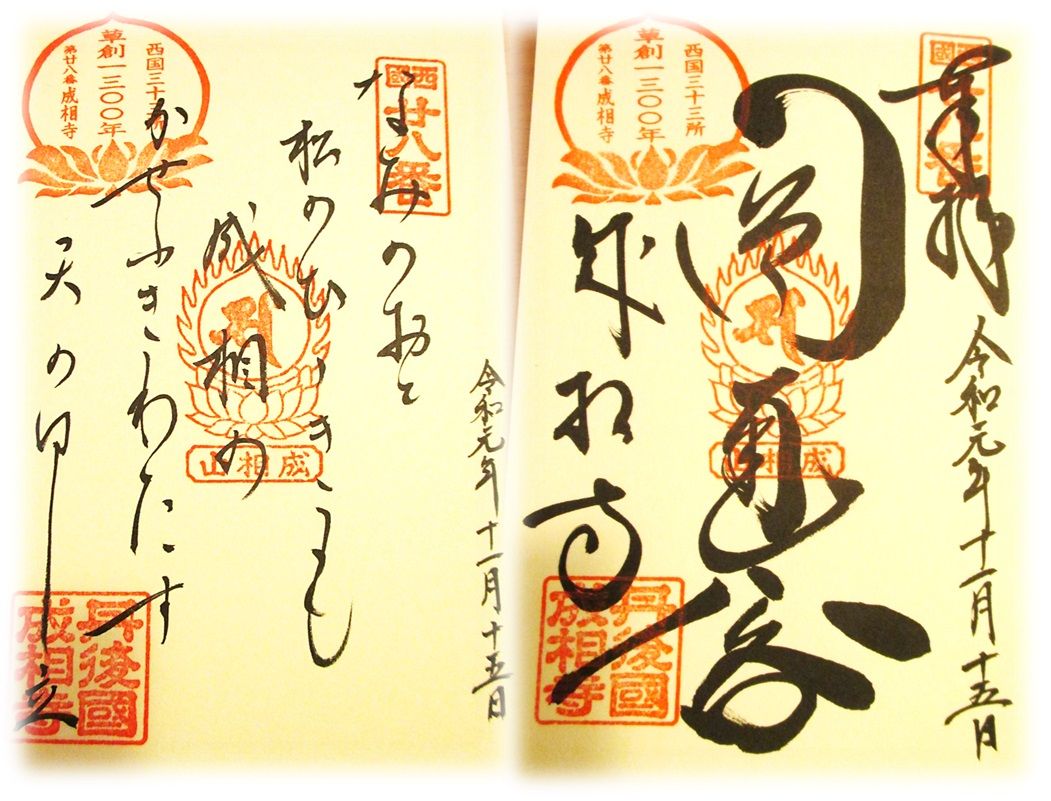 奉拝
令和元年十一月十五日
西國
廿八番
西国三十三所
草創一三〇〇年
第廿八番成相寺
成相山
成相寺
丹後國
成相寺
令和元年十一月十五日
西國
廿八番
なみのおと
松のひゝきも
成相の
かせふきわたす
天のはし立
西国三十三所
草創一三〇〇年
第廿八番成相寺
成相山
丹後國
成相寺